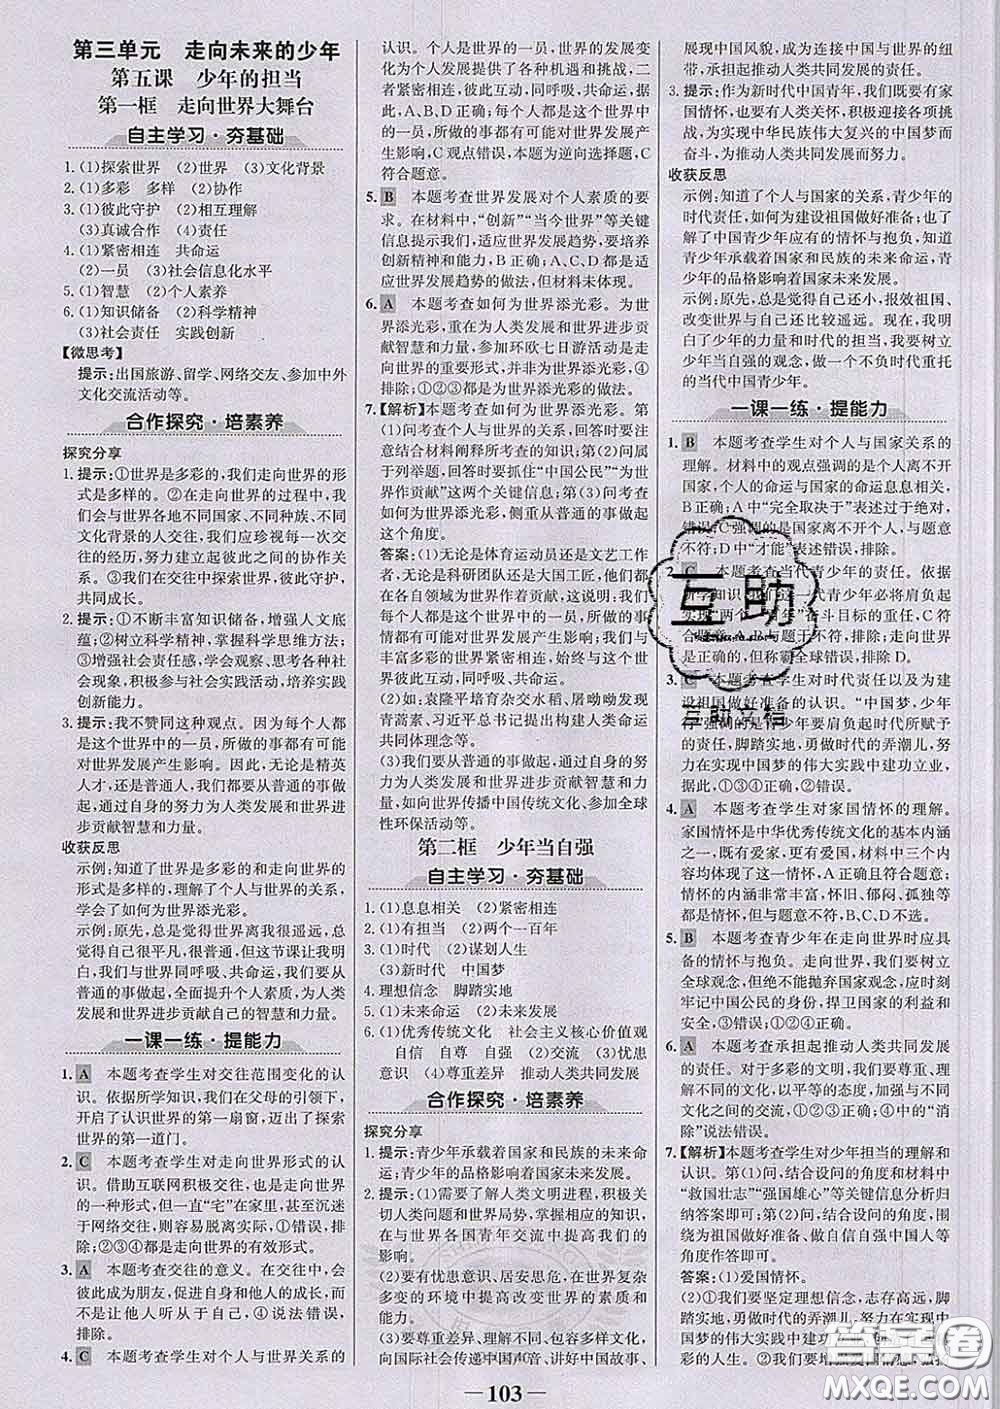 第三单元 走向未来的少年
第五课 少年的担当
第一框 走向世界大舞台
自主学习·夯基础
1.(1)探索世界 (2)世界 (3)文化背景
2.(1)多彩 多样 (2)协作
3.(1)彼此守护 (2)相互理解
(3)真诚合作 (4)责任
4.(1)紧密相连 共命运
(2)一员 (3)社会信息化水平
5.(1)智慧 (2)个人素养
6.(1)知识储备 (2)科学精神
(3)社会责任 实践创新
【微思考】
提示:出国旅游、留学、网络交友、参加中外
文化交流活动等。
合作探究·培素养
探究分享
1.提示:①世界是多彩的,我们走向世界的形
式是多样的。②在走向世界的过程中,我们
会与世界各地不同国家、不同种族、不同
文化背景的人交往,我们应珍视每一次交往
的经历,努力建立起彼此之间的协作关
系。③我们在交往中探索世界,彼此守护,
共同成长。
2.提示:①不断丰富知识储备,增强人文底
蕴;②树立科学精神,掌握科学思维方法;
③提升社会责任感,学会观察、思考各种社
会现象,积极参与社会实践,培养实践
创新能力。
3.提示:我不赞同这种观点。因为每个人都
是世界中的一员,所做的事情都有可能对
世界发展产生影响。因此,无论是精英人
才,还是普通人,我们都要从普通的事做
起,通过自身的努力为人类发展和世界进
步贡献智慧和力量。
收获反思
示例:知道了世界是多彩的和走向世界的
形式是多样的,理解了个人与世界的关系,
学会了如何为世界添光彩。
示例:原先,总是觉得世界离我很遥远,总觉
得自己很平凡、很普通,但这节课让我明
白,我们与世界同呼吸、共命运,我们要从
普通的事做起,全面提升个人素质,为人类
发展和世界进步贡献自己的智慧和力量。
一课一练·提能力
1. A 本题考查学生对交往范围变化的认
识。依据所学知识,我们在父母的引领下,
开启了认识世界的第一扇窗,迈出了探索
世界的第一道门。
2. C 本题考查学生对走向世界形式的认
识。借助互联网积极交往,也是走向世界
的一种形式,但只有“宅”在家里,甚至沉迷
于网络交往,则容易脱离实际,①错误,排
除;②③④都是走向世界的有效形式。
3. A 本题考查交往的意义。在交往中,会
彼此成为朋友,促进自身和他人的成长,而
不是让他人听从于自己,④说法错误,
排除。
4. C 本题考查学生对个人与世界关系的
认识。个人是世界的一员,世界的发展变化
为个人发展提供了各种机遇和挑战,二
者紧密相连,同呼吸,共命运,个人发展影响
世界,故A、B、D正确;每个人都是这个世界
中的一员,所做的事都有可能对世界发展
产生影响,C观点错误,本题为逆向选择题,C
符合题意。
5. B 本题考查世界发展对个人素质的要
求。在材料中,“创新”“当今世界”等关键
信息提示我们,适应世界发展趋势,要培养
创新精神和能力,B正确;A、C、D都是适应世
界发展趋势的做法,但材料未体现。
6. A 本题考查如何为世界添光彩。为世
界添光彩,重在为人类发展和世界进步贡
献智慧和力量,参加环欧七日游活动是走
向世界的重要形式,并非为世界添光彩,④
排除;①②③都是为世界添光彩的做法。
7.【解析】本题考查如何为世界添光彩。第
(1)问考查个人与世界的关系,回答时要注
意结合材料阐释所考查的知识;第(2)问属
于列举题,回答时要抓住“中国公民”“为世
界作贡献”这两个关键信息;第(3)问考查
如何为世界添光彩,侧重从普通的事做起
这个角度。
答案:(1)无论是体育运动员还是文艺工作
者,无论是科研团队还是大国工匠,他们都
在各自领域为世界作贡献。在这个世界
中,我们每个人都是世界的一员,所做的事
情都有可能对世界发展产生影响。我们与
丰富多彩的世界紧密相连,个人的前途与世
界彼此影响。
(2)如,袁隆平培育杂交水稻、屠呦呦发现
青蒿素、习近平总书记提出构建人类命运
共同体理念等。
(3)我们要从普通的事做起,通过自身的努
力为人类发展和世界进步贡献智慧和力
量,如向世界传播中国传统文化、参加全球
性环保活动等。
第二框 少年当自强
自主学习·夯基础
1.(1)息息相关 (2)紧密相连
2.(1)有担当 (2)两个一百年
3.(1)时代 (2)谋划人生
(3)新时代 中国梦
4.理想信念 脚踏实地
5.(1)未来命运 (2)未来发展
6.(1)优秀传统文化 社会主义核心价值观
自信 自尊 自强 (2)交流 (3)忧患
意识 (4)尊重差异 推动人类共同发展
合作探究·培素养
探究分享
1.提示:青少年承载着国家和民族的未来命
运;青少年的品格影响着国家未来发展。
2.提示:(1)需要了解人类文明进程,积极关
切人类问题和世界局势,掌握相应的知识,
在与世界各国青年交流中扩大我们的
影响。
(2)要有忧患意识、居安思危,在世界复杂
多变的环境中提高改变世界的素质和
能力。
(3)要尊重差异、理解不同、包容多样,积极
向国际社会传递中国声音、讲好中国故事、
展现中国风貌,成为连接中国与世界的纽
带,推动人类共同发展。
3.提示:作为新时代中国青年,我们既要有
家国情怀,也要有人类关怀,积极迎接各项
挑战,为实现中华民族伟大复兴的中国梦而
奋斗,为推动人类共同发展而努力。
收获反思
示例:知道了个人与国家的关系,青少年的
时代责任,如何为建设祖国做好准备;也了
解了中国青少年应有的情怀与抱负,知道青
少年承载着国家和民族的未来命运,青
少年的品格影响着国家未来发展。
示例:原先,总是觉得自己还小,报效祖国、
改变世界与自己还比较遥远。现在,我
明白了少年的力量和时代的担当,我要树立
少年当自强的观念,做一个不负时代重托
的当代中国青少年。
一课一练·提能力
1. B 本题考查学生对个人与国家关系的
理解。材料中的观点强调的是个人离不开
国家,个人的命运与国家的命运息息相关,
B正确;A中“完全取决于”表述过于绝对,
错误;C强调的是国家离不开个人,与题意
不符;D中“才能”表述错误,排除。
2. C 本题考查当代青少年的责任。依据
所学知识,
3. C 本题考查学生对时代责任以及为
建设祖国做好准备的认识。“中国梦,少年
强”强调的是少年要肩负起时代所赋予
的责任,脚踏实地,勇做时代的弄潮儿,
在实现中国梦的伟大实践中建功立业,
据此,①③④正确;②错误。
4. A 本题考查学生对家国情怀的理解。
家国情怀是中华优秀传统文化的基本内涵
之一,既要有爱家,更有爱国,材料中三个
内容均体现了这一点,A正确且符合题意;
情怀的内涵非常丰富,怀旧、郁闷、孤独等
都是情怀,但与题意不符,B、C、D不选。
5. B 本题考查青少年在走向世界时应具
备的情怀与抱负。在走向世界中,我们要树立
全球观念,但不能抛弃国家观念,应时刻
牢记中国公民的身份,捍卫国家的利益和
安全,①排除;②③④正确。
6. A 本题考查承担起推动人类共同发展
的责任。面对多彩的文明,我们要尊重差异、
理解个性,以平等的态度,加强与不同
文化之间的交流,①②③正确;④中的“消
除”说法错误。
7.【解析】本题考查学生对少年担当的理解和
认识。第(1)问,结合设问的角度和材料中
“救国壮志”“强国雄心”等关键信息分析归
纳答案即可;第(2)问,要从坚定理想信念、
脚踏实地、做自信自尊自强的中国人等
角度作答即可。
答案:(1)爱国情怀。
(2)①我们要坚定理想信念,志存高远,脚
踏实地,勇做时代的弄潮儿,努力在实现中
国梦的伟大实践中建功立业,书写别样精
彩的人生。
互助
互助文档
答案圈
MXQE.COM
— 103 —